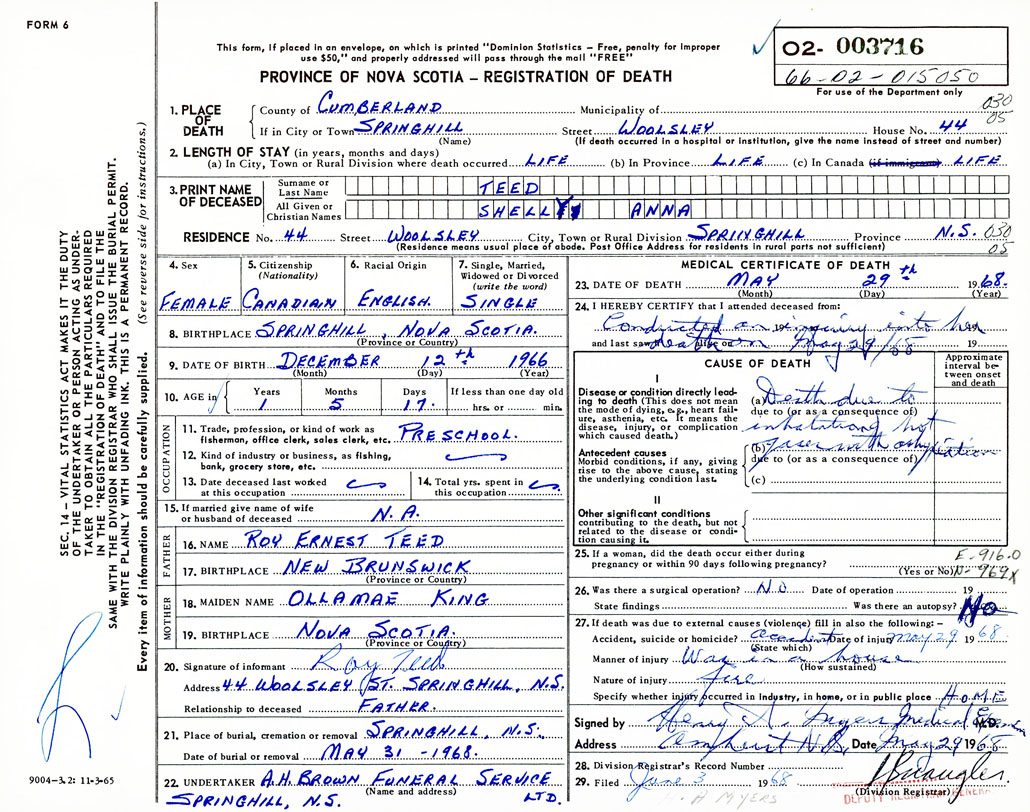 FORM 6
This form, if placed in an envelope, on which is printed "Dominion Statistics – Free, penalty for improper
use $50," and properly addressed will pass through the mail "FREE"
PROVINCE OF NOVA SCOTIA – REGISTRATION OF DEATH
02- 003716
66-02-015050
For use of the Department only
1. PLACE OF DEATH
County of CUMBERLAND Municipality of 030
If in City or Town SPRINGHILL Street WOOLSLEY House No. 44 05
(Name) (If death occurred in a hospital or institution, give the name instead of street and number)
2. LENGTH OF STAY (in years, months and days)
(a) In City, Town or Rural Division where death occurred LIFE (b) In Province LIFE (c) In Canada (if immigrant) LIFE
3. PRINT NAME OF DECEASED
Surname or Last Name TEED
All Given or Christian Names SHELLY ANNA
RESIDENCE No. 44 Street WOOLSLEY City, Town or Rural Division SPRINGHILL Province N.S. 030
(Residence means usual place of abode. Post Office Address for residents in rural parts not sufficient) 05
4. Sex
FEMALE
5. Citizenship (Nationality)
CANADIAN
6. Racial Origin
ENGLISH.
7. Single, Married, Widowed or Divorced (write the word)
SINGLE
8. BIRTHPLACE SPRINGHILL, NOVA SCOTIA.
(Province or Country)
9. DATE OF BIRTH DECEMBER 12th 1966
(Month) (Day) (Year)
10. AGE in
Years Months Days If less than one day old
1 5 17. hrs. or min.
OCCUPATION
11. Trade, profession, or kind of work as
fisherman, office clerk, sales clerk, etc. PRESCHOOL.
12. Kind of industry or business, as fishing,
bank, grocery store, etc.
13. Date deceased last worked
at this occupation
14. Total yrs. spent in
this occupation
15. If married give name of wife
or husband of deceased N.A.
FATHER
16. NAME ROY ERNEST TEED
17. BIRTHPLACE NEW BRUNSWICK
(Province or Country)
MOTHER
18. MAIDEN NAME OLLAMAE KING
19. BIRTHPLACE NOVA SCOTIA.
(Province or Country)
20. Signature of informant Roy Teed
Address 44 WOOLSLEY ST. SPRINGHILL, N.S.
Relationship to deceased FATHER.
21. Place of burial, cremation or removal SPRINGHILL, N.S.
Date of burial or removal MAY 31 - 1968.
22. UNDERTAKER A.H. BROWN FUNERAL SERVICE
(Name and address)
SPRINGHILL, N.S. LTD.
MEDICAL CERTIFICATE OF DEATH
23. DATE OF DEATH MAY 29th 1968.
(Month) (Day) (Year)
24. I HEREBY CERTIFY that I attended deceased from:
Conducted an inquiry into her 19
and last saw alive on 19
death on May 29/68
CAUSE OF DEATH
Approximate interval between onset and death
I
Disease or condition directly lead-
ing to death (This does not mean
the mode of dying, e.g., heart fail-
ure, asthenia, etc. It means the
disease, injury, or complication
which caused death.)
(a) Death due to
due to (or as a consequence of)
inhalation of hot
Antecedent causes
Morbid conditions, if any, giving
rise to the above cause, stating
the underlying condition last.
(b) gases with asphyxiation
due to (or as a consequence of)
(c)
II
Other significant conditions
contributing to the death, but not
related to the disease or condi-
tion causing it.
25. If a woman, did the death occur either during E-916.0
pregnancy or within 90 days following pregnancy? (Yes or No) N-969X
26. Was there a surgical operation? NO Date of operation 19
State findings Was there an autopsy? No
27. If death was due to external causes (violence) fill in also the following: –
Accident, suicide or homicide? accident Date of injury May 29 1968.
(State which)
Manner of injury Was in a house
(How sustained)
Nature of injury fire
Specify whether injury occurred in industry, in home, or in public place HOME
Signed by Henry A. Myers Medical M.D.
Address Amherst N.S. Date May 29 1968
28. Division Registrar's Record Number
29. Filed June 3 1968
(Division Registrar)
H A MYERS
DEPUTY REGISTRAR GENERAL
SEC. 14 – VITAL STATISTICS ACT MAKES IT THE DUTY
OF THE UNDERTAKER OR PERSON ACTING AS UNDER-
TAKER TO OBTAIN ALL THE PARTICULARS REQUIRED
IN THE "REGISTRATION OF DEATH" AND TO FILE THE
SAME WITH THE DIVISION REGISTRAR WHO SHALL ISSUE THE BURIAL PERMIT.
WRITE PLAINLY WITH UNFADING INK. THIS IS A PERMANENT RECORD.
Every item of information should be carefully supplied. (See reverse side for instructions.)
9004-3.2: 11-3-65